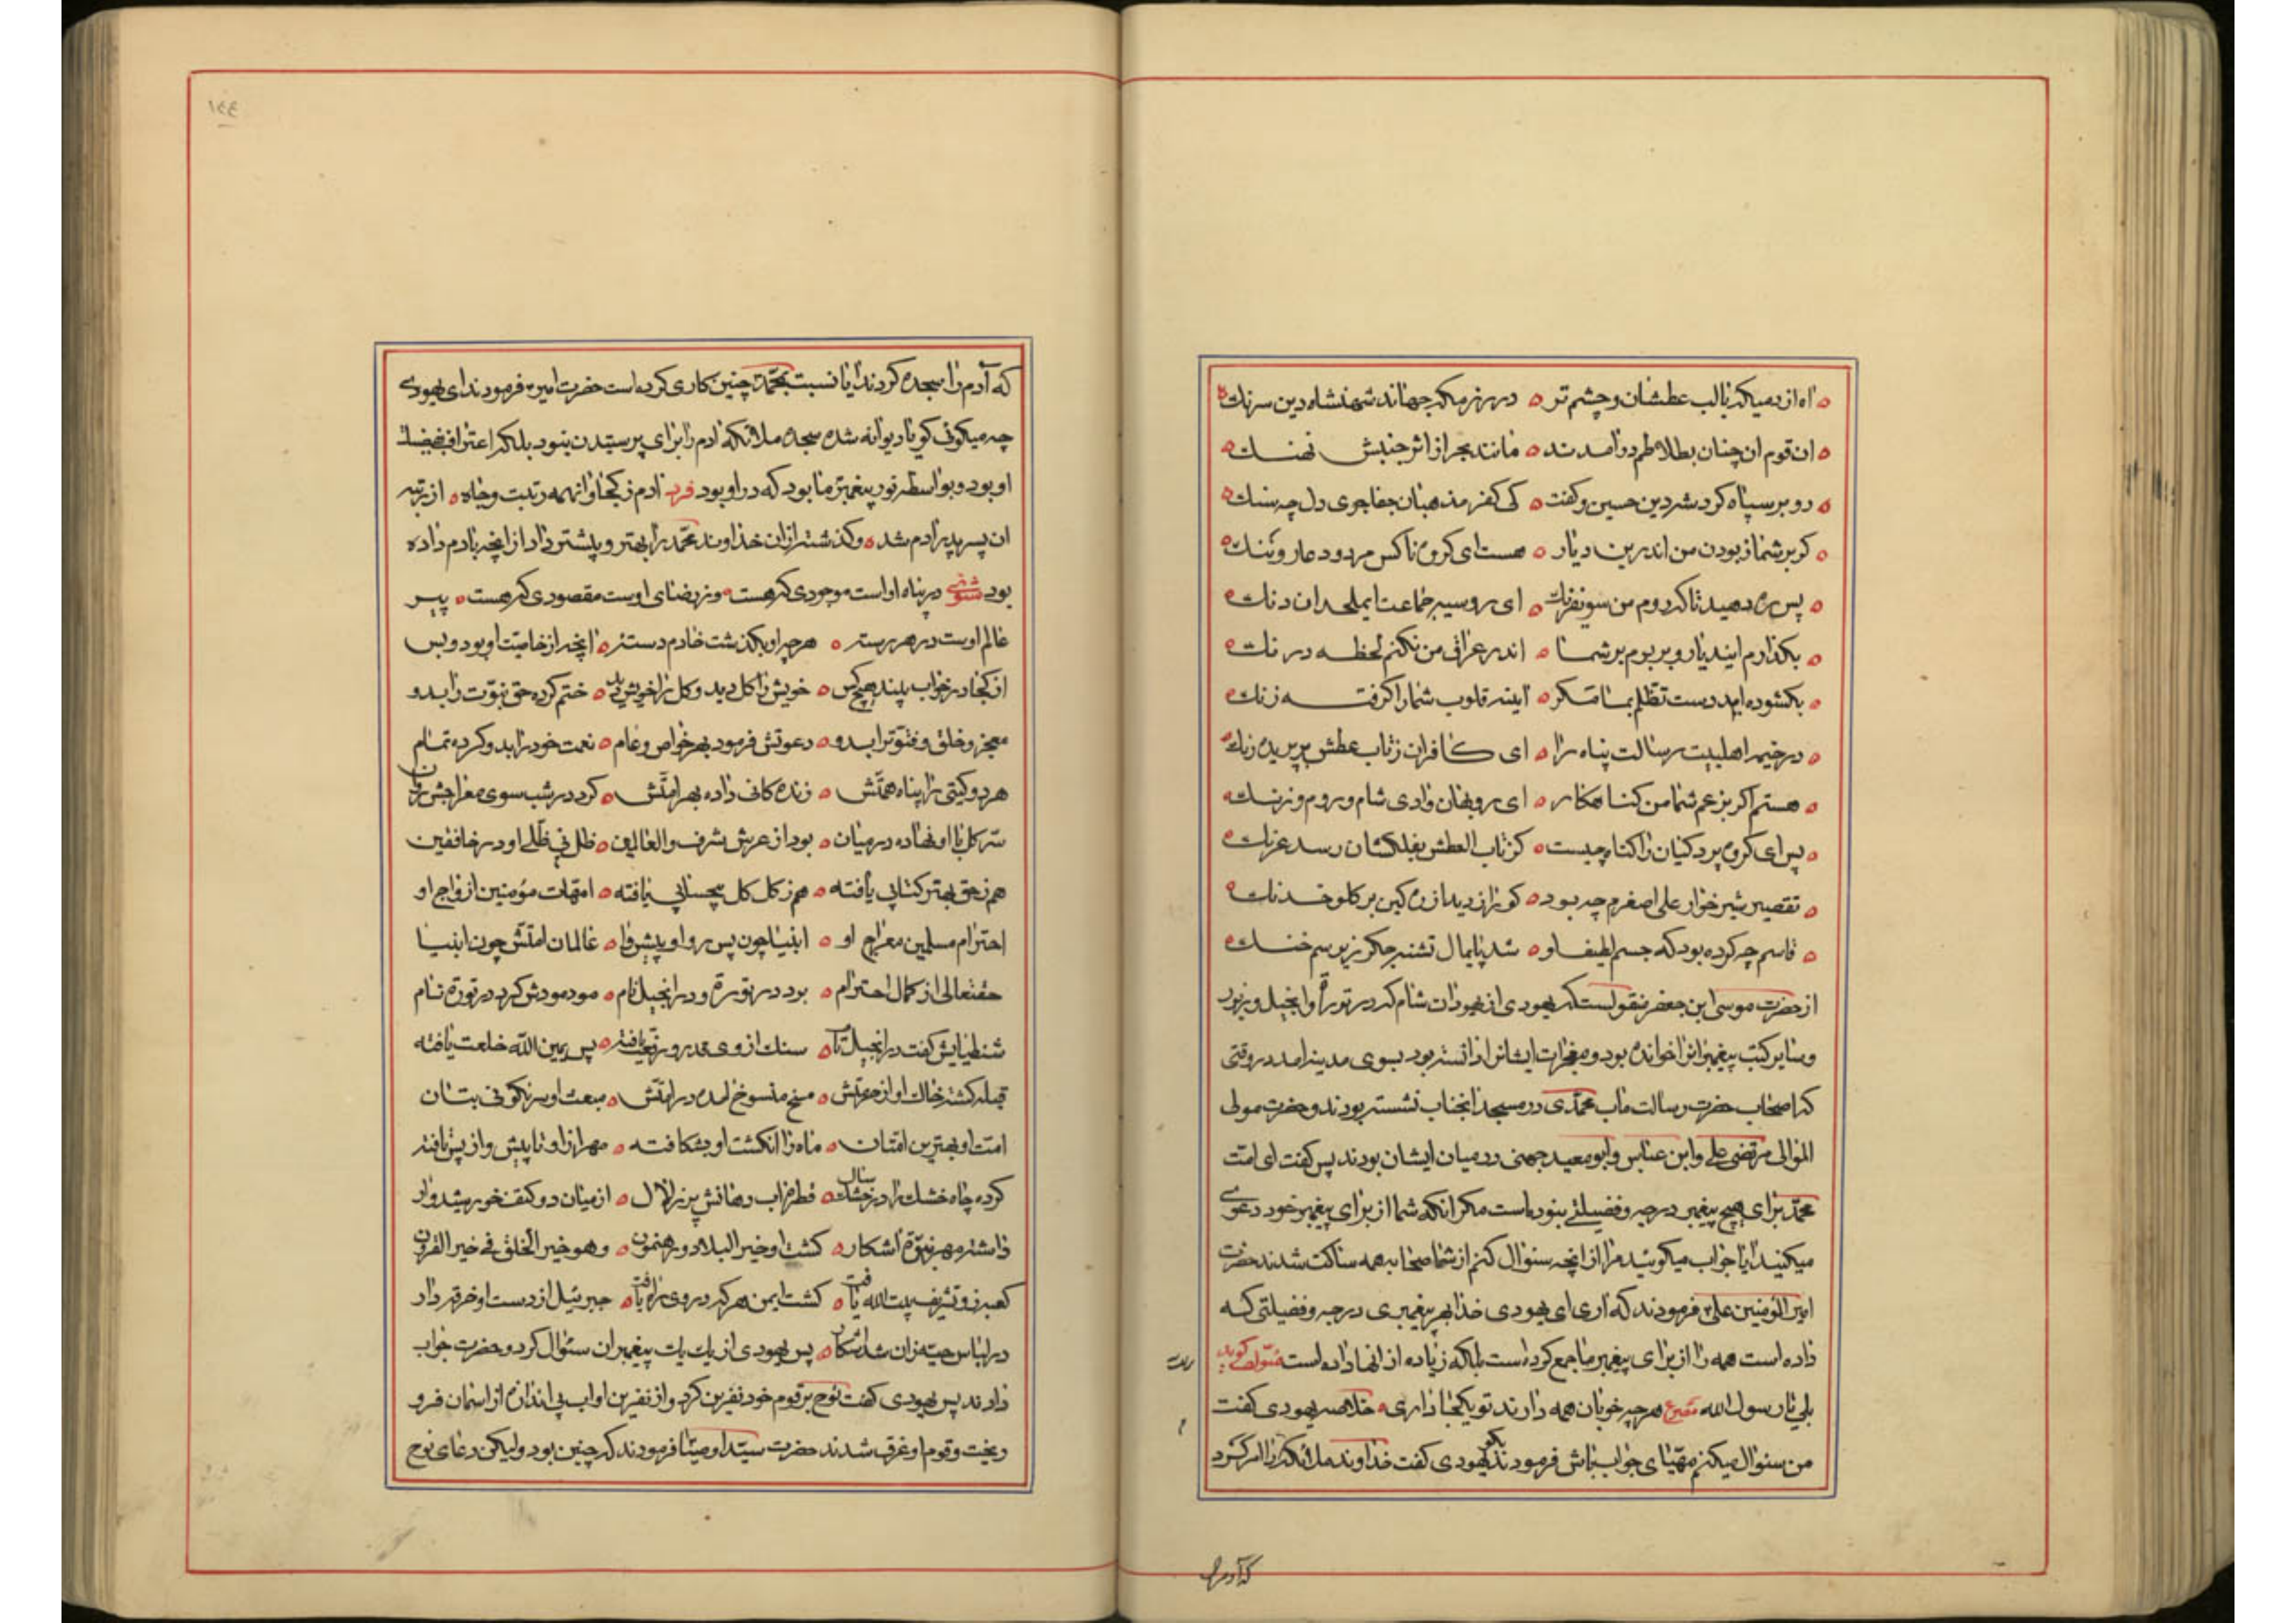 آه از دمیکه با لب عطشان و چشم تر ه در رزمکه بماند شهنشاه دین
ان قوم ان چنان بطلاطم درآمدند ه مانند بحر از اثر جنبش نهنک ه
رو بر سپاه کرد شه دین حسین و کفت ه کی کفر مذهبان جفاجوی دل چه سنک ه
کر بر شما ز بودن من اندرین دیار ه هست ای کروه ناکس مردود عار و ننک ه
پس ره دهید تا که روم من سوی فرنک ه ای روسیه جماعت ای ملحدان دنک ه
بکذارم این دیار و بروم بر شما ه اندر عراق من نکنم لحظه درنک ه
بکشوده اید دست تظلم بما مکر ه آینه قلوب شما را کرفته زنک ه
در خیمه اهلبیت رسالت پناه را ه ای کافران ز تاب عطش پریده رنک ه
هستم اکر بزعم شما من کناهکار ه ای روبهان وادی شام و روم و زنک ه
پس ای کروه پردکیان را کناه چیست ه کز تاب العطش بفلکشان رسد غرنک ه
تقصیر شیرخوار علی اصغرم چه بود ه کو را زدید از ره کین بر کلو خدنک ه
قاسم چه کرده بود که جسم لطیف او ه شد پایمال تشنه جکر زیر سم خنک ه
از حضرت موسی ابن جعفر منقولست که یهودی از یهودان شام که در توراة و انجیل و زبور
و سایر کتب پیغمبرانرا خوانده بود و معجزات ایشانرا دانسته بود بسوی مدینه آمد در وقتی
که اصحاب حضرت رسالت مآب محمدی در مسجد آنجناب نشسته بودند و حضرت مولی
الموالی مرتضی علی و ابن عباس و ابو معید جهنی در میان ایشان بودند پس کفت ای امت
محمد برای هیچ پیغمبر درجه و فضیلتی نبوده است مکر انکه شما از برای پیغمبر خود دعوی
میکنید آیا جواب میکوئید مرا از انچه سئوال کنم از شما صحابه همه ساکت شدند حضرت
امیرالمومنین علی فرمودند که آری ای یهودی خدا بهر پیغمبری درجه و فضیلتی که
داده است همه را از برای پیغمبر ما جمع کرده است بلکه زیاده از انها داده است مؤلف کوید
بلی یا رسول الله مصرع هرچه خوبان همه دارند تو یکجا داری ه خلاصه یهودی کفت
من سئوال میکنم مهیای جواب باش فرمودند بکو یهودی کفت خداوند ملائکه را امر کرد
که آدم را
۱۴۴
که آدم را سجده کردند آیا نسبت بمحمد چنین کاری کرده است حضرت امیر فرمودند ای یهودی
چه میکوئی کویا دیوانه شده سجده ملائکه ادم را برای پرستیدن نبود بلکه اعتراف بفضیلت
او بود و بواسطه نور پیغمبر ما بود که در او بود فرد ادم ز کجا و انهمه رتبت و جاه ه از رتبه
ان پسر پدر ادم شد ه و کذشته از ان خداوند محمد را بهتر و بیشتر داد از انچه بادم داده
بود مثنوی در پناه اوست موجودی که هست ه وز رضای اوست مقصودی که هست ه پیر
عالم اوست در هر رسته ه هرچه او بکذشت خادم دسته ه انچه از خاصیت او بود و بس
از کجا در خواب بیند هیچ کس ه خویش را کل دید و کل را خویش دید ه ختم کرده حق نبوت را بدو
معجز و خلق و فتوت را بدو ه دعوتش فرمود بهر خواص و عام ه نعمت خود را بدو کرده تمام
هر دو کیتی را پناه همتش ه زنده کانی داده بهر امتش ه کرد در شب سوی معراجش روان
سر کل با او نهاده در میان ه بود از عرش شرف والعالمین ه ظل بی ظلی او در خافقین
هم ز حق بهتر کتابی یافته ه هم ز کل کل بیحسابی یافته ه امهات مؤمنین ازواج او
احترام مسلمین معراج او ه انبیا چون پس رو او پیشوا ه عالمان امتش چون انبیا
حقتعالی از کمال احترام ه برد در توراة و در انجیل نام ه مودمودش کرد در توراة نام
شنطیایش کفت در انجیل ه سنک از وی قدر و رفعت یافته ه پس یمین الله خلعت یافته
قبله کشته خاک او از حرمتش ه مسخ منسوخ آمده در امتش ه مبعث او سرنکونی بتان
امت او بهترین امتان ه ماه را انکشت او بشکافته ه مهر از او تا پیش و از پس یافته
کرده چاه خشک را در خشک سال ه قطره اب دهانش پر زلال ه از میان دو کتف خورشیدوار
داشته مهر نبوة آشکار ه کشت او خیر البلاد و رهنمون ه و هو خیر الخلق فی خیر القرون
کعبه زو تشریف بیت الله یافت ه کشت ایمن هر که در وی راه یافت ه جبرئیل از دست او خرقه دار
در لباس دحیه زان شد آشکار ه پس یهودی از یک یک پیغمبران سئوال کرد و حضرت جواب
دادند پس یهودی کفت نوح بر قوم خود نفرین کرد و از نفرین او اب بی اندازه از اسمان فرو
ریخت و قوم او غرق شدند حضرت سید اوصیا فرمودند که چنین بود و لیکن دعای نوح